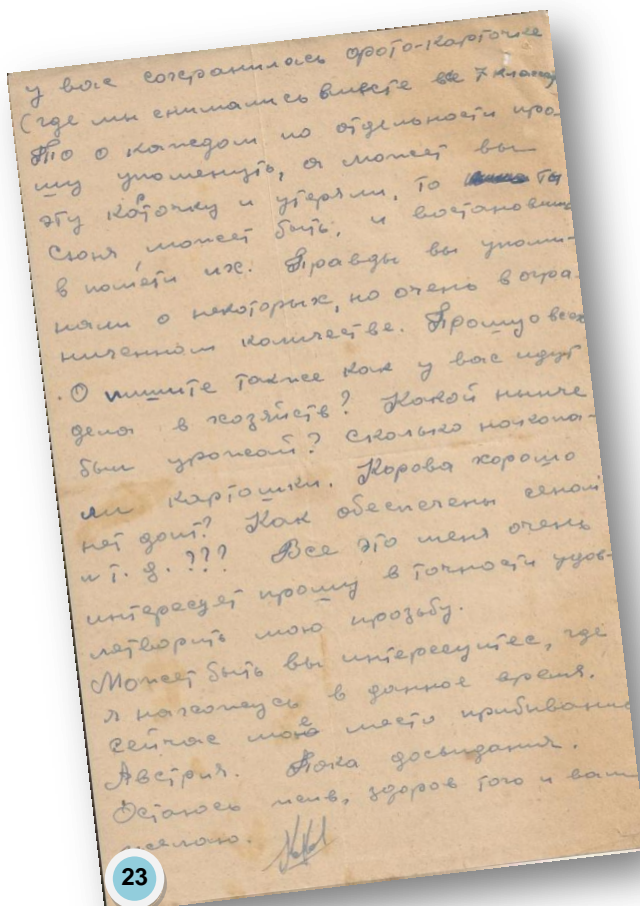 у вас сохранилась фото-карточке
(где мы снимались вместе 7 класс)
То о каждом по отдельности про-
шу упоменуть, а может вы
эту карточку и утеряли, то ты
Сюня, может быть, и востановишь
в помети их. Правды вы упоми-
нали о некоторых, но очень в огра-
ниченном количестве. Прошу о всех
О пишите также как у вас идут
дела в хозяйств? Какой нынче
был урожай? Сколько накопа-
ли картошки. Корова хорошо
нет доит? Как обеспечены сеном
и т.д.??? Все это меня очень
интересует прошу в точности удов-
летворить мою прозьбу.
Может быть вы интересуетес, где
я нахожусь в данное время.
Сейчас мое место прибивание
Австрия. Пока досвидания.
Остаюсь жив, здоров того и вам
желаю.
23